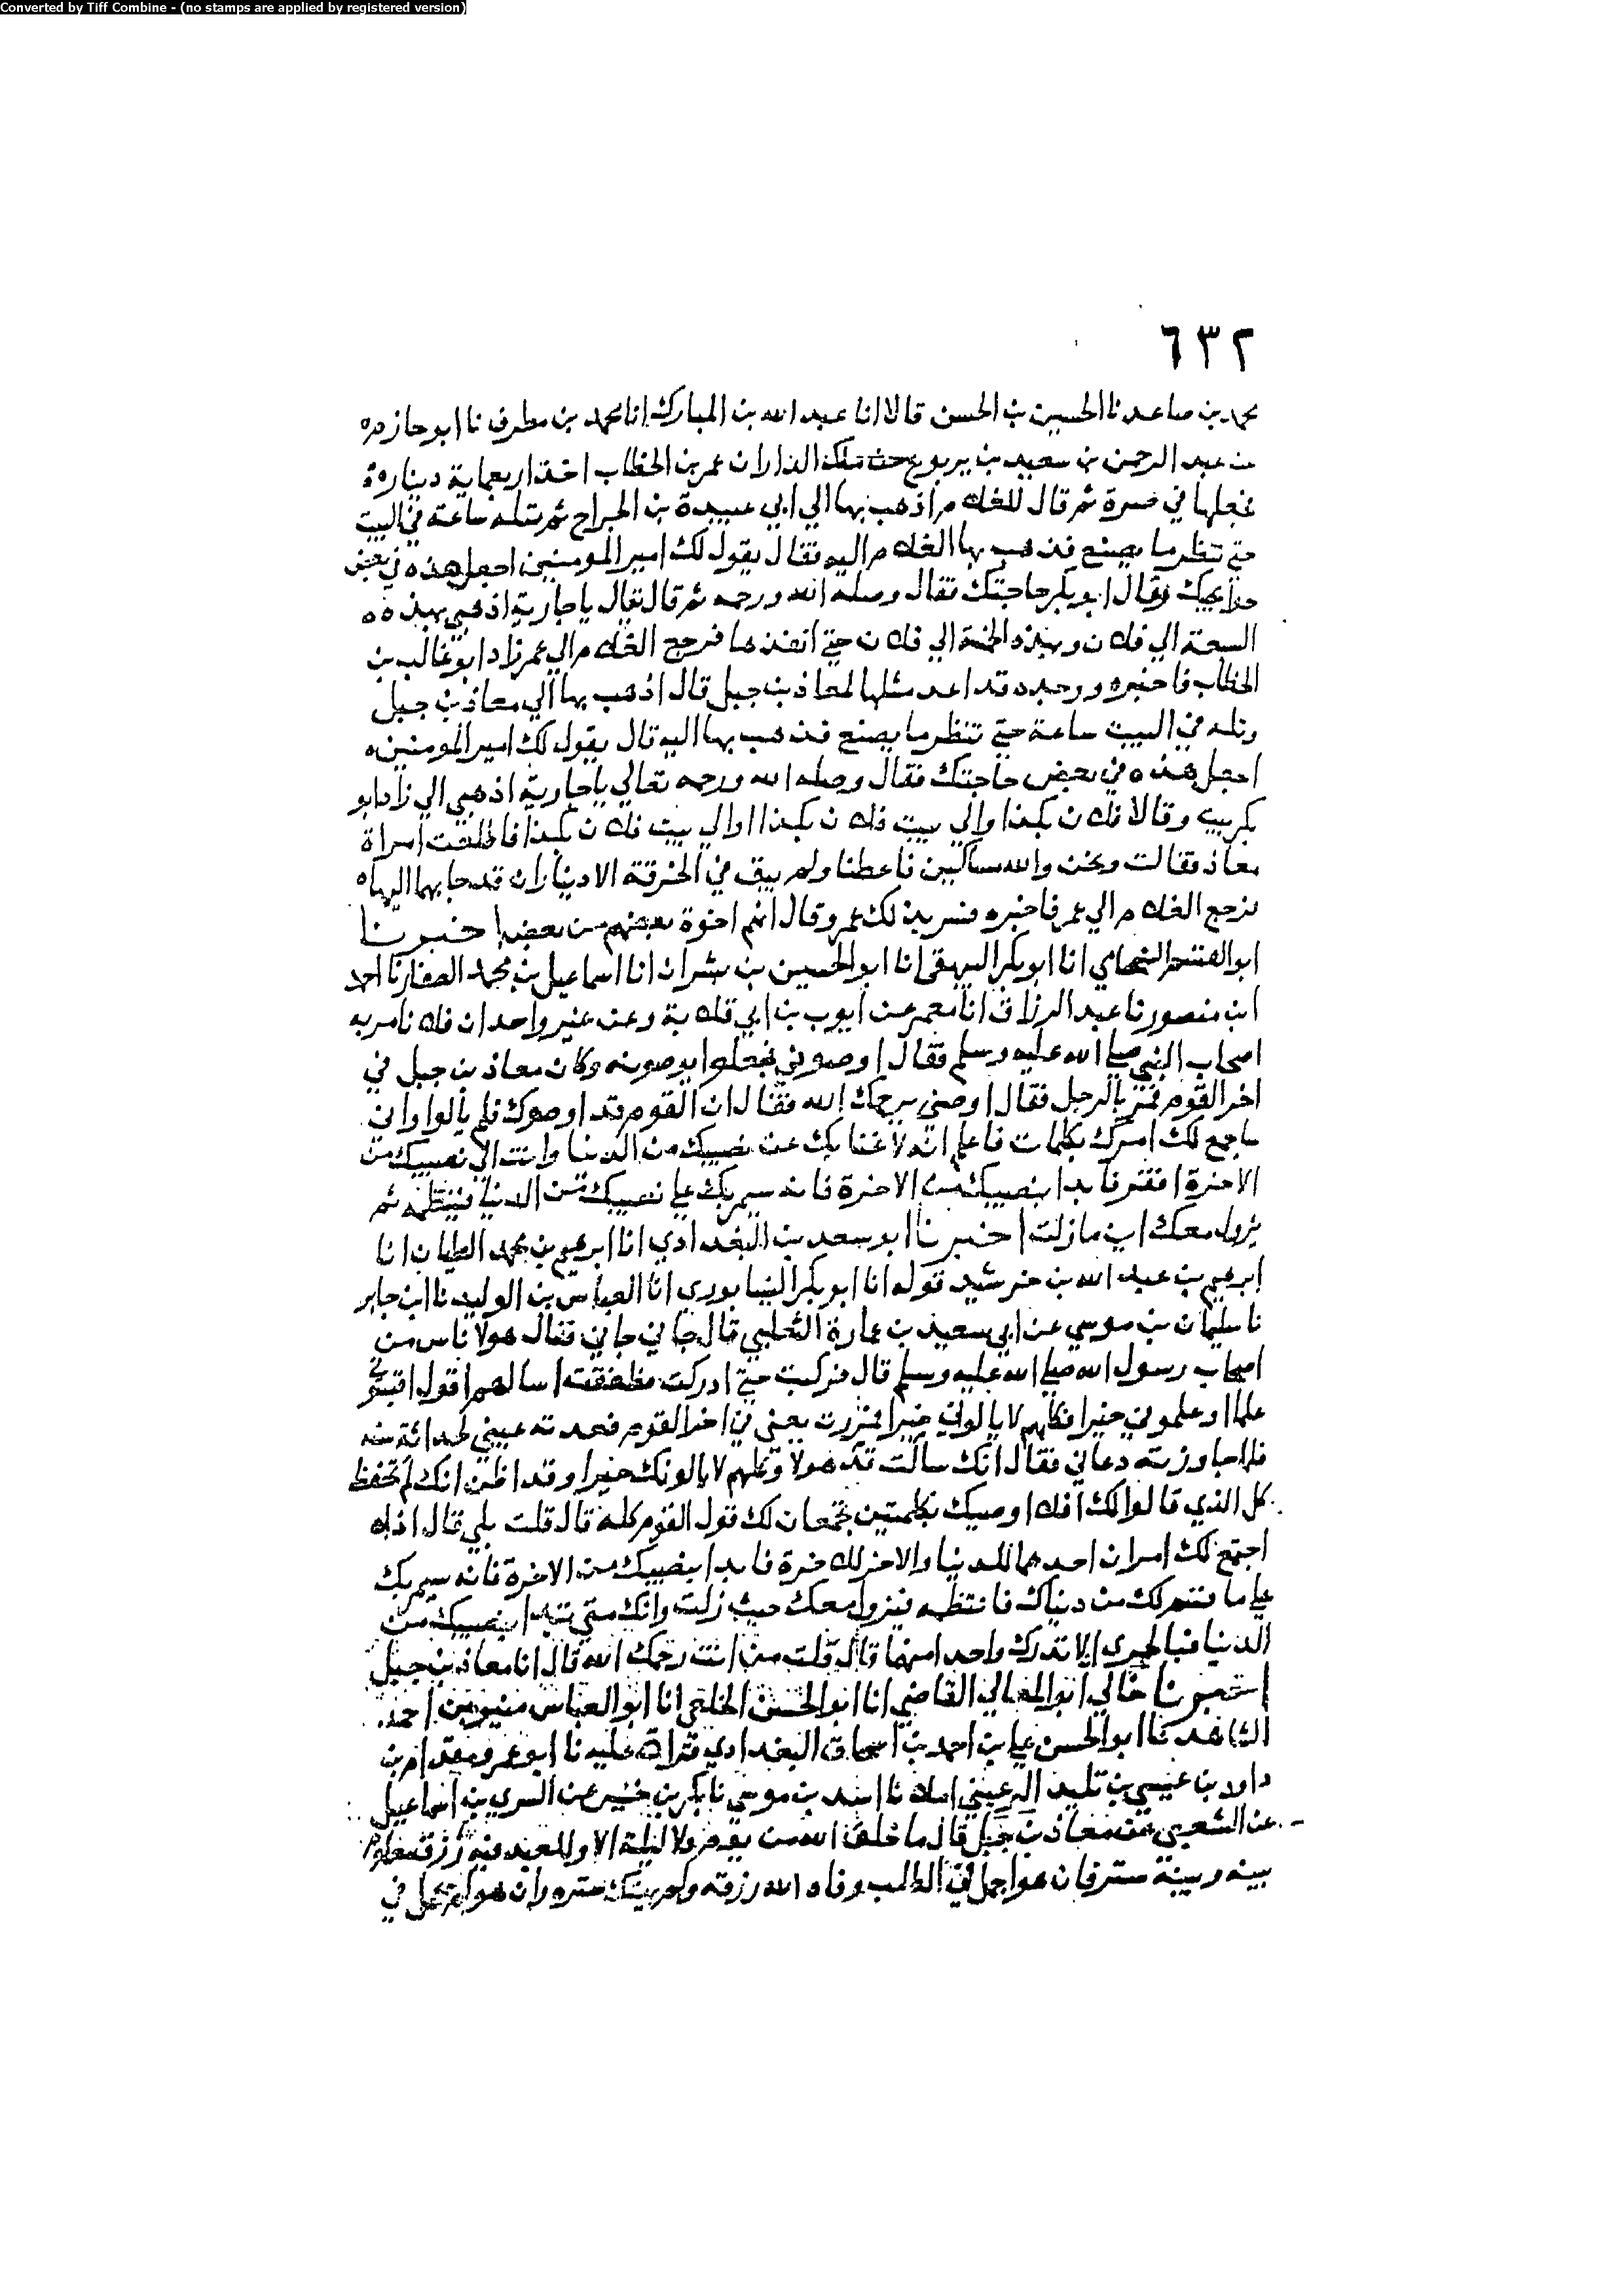 Converted by Tiff Combine - (no stamps are applied by registered version)
٦٣٢
محمد بن صاعد نا الحسين بن الحسن قالا انا عبد الله بن المبارك انا محمد بن مطرف نا ابو حازم
عبد الرحمن بن سعيد بن يربوع عن ملك الدار ان عمر بن الخطاب اخذ اربعماية دينار
فجعلها في صرة ثم قال للغلام اذهب بها الي ابي عبيدة بن الجراح ثم تله ساعة في البيت
حتي تنظر ما يصنع فذهب بها الغلام اليه فقال يقول لك امير المومنين اجعل هذه في بعض
حوايجك وقال ابو بكر حاجتك فقال وصله الله ورحمه ثم قال تعالي يا جارية اذهبي بهذه
السبعة الي فلان وبهذه الخمسة الي فلان حتي انفذها فرجع الغلام الي عمر زاد ابو غالب بن
الخطاب فاخبره ووجده قد اعد مثلها لمعاذ بن جبل قال اذهب بها الي معاذ بن جبل
وتله في البيت ساعة حتي تنظر ما يصنع فذهب بها اليه قال يقول لك امير المومنين
اجعل هذه في بعض حاجتك فقال وصله الله ورحمه تعالي يا جارية اذهبي الي زاد ابو
بكر بيت وقالا فلان بكذا والي بيت فلان بكذا والي بيت فلان بكذا فاطلعت امراة
معاذ فقالت ونحن والله مساكين فاعطنا ولم يبق في الخرقة الا ديناران قد جا بهما اليها
فرجع الغلام الي عمر فاخبره فسر بذلك عمر وقال انهم اخوة بعضهم من بعض اخبرنا
ابو الفتح الشحامي انا ابو بكر البيهقي انا ابو الحسين بن بشران انا اسماعيل بن محمد الصفار نا احمد
ابن منصور نا عبد الرزاق انا معمر عن ايوب بن ابي قلابة وعن غير واحد ان فلانا مر به
اصحاب النبي صلي الله عليه وسلم فقال اوصوني فجعلوا يوصونه وكان معاذ بن جبل في
اخر القوم فمر بالرجل فقال اوصني يرحمك الله فقال ان القوم قد اوصوك فلم يالوا واني
ساجمع لك امرك بكلمات فاعلم انه لا غنا بك عن نصيبك من الدنيا وانت الي نصيبك من
الاخرة افقر فابدا بنصيبك من الاخرة فانه سيمر بك علي نصيبك من الدنيا فينتظمه ثم
يزول معك اين مازلت اخبرنا ابو سعد بن البغدادي انا ابرهيم بن محمد الطيان انا
ابرهيم بن عبد الله بن خرشيد قوله انا ابو بكر النيسابوري انا العباس بن الوليد نا ابن جابر
نا سليمان بن موسي عن ابي سعيد بن عمارة الثعلبي قال جاني جاني فقال هولا ناس من
اصحاب رسول الله صلي الله عليه وسلم قال فركبت حتي ادركت فطفقت اسالهم اقول
علما او علموني خيرا فكلهم لا يالوني خيرا فمررت يعني في اخر القوم لحداثة سنه
فلما جاوزته دعاني فقال انك سالت هولا وكلهم لا يالونك خيرا وقد اظن انك لم تحفظ
كل الذي قالوا لك افلا اوصيك بكلمتين تجمعان لك قول القوم كله قال قلت بلي قال اذا
اجتمع لك امران احدهما للدنيا والاخر للاخرة فابدا بنصيبك من الاخرة فانه سيمر بك
علي ما قسم لك من دنياك فانتظمه فيزول معك حيث زلت وانك متي تبدا بنصيبك من
الدنيا فبالحري الا تدرك واحدا منهما قال قلت من انت رحمك الله قال انا معاذ بن جبل
اخبرنا خالي ابو المعالي القاضي انا ابو الحسن الخلعي انا ابو العباس منير بن احمد
الشاهد نا ابو الحسن علي بن احمد بن اسحاق البغدادي قراة عليه نا ابو عمرو مقدام بن
داود بن عيسي بن تليد الرعيني املا نا اسد بن موسي نا بكر بن خنيس عن السري بن اسماعيل
عن الشعبي عن معاذ بن جبل قال ما خلق الله من يوم ولا ليلة الا وللعبد فيه رزق معلوم
بينه وبينه ستر فان هو اجمل في الطلب وفاه الله رزقه ولم يهتك ستره وان هو لم يجمل في